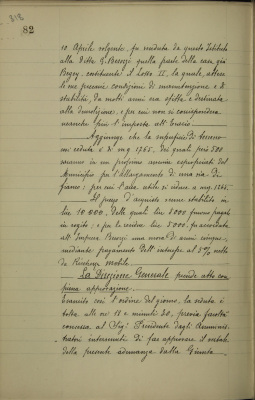 82
10 Aprile volgente, fu venduta da questo Istituto
alla Ditta R. Berozzi quella parte della casa, già
costituente il Lotto II, la quale, attese
le sue precarie condizioni di manutenzione e di
stabilità, da molti anni era sfitta, e destinata
alla demolizione, e per cui non si corrispondeva
neanche più l'imposta all'Erario.
Aggiunge che la superficie di terreno
venduta è di mq 1765, dei quali però 500
saranno in un prossimo avvenire espropriati dal
Municipio per l'allargamento di una via di
per cui l'area utile si riduce a mq. 1265.
Il prezzo d'acquisto venne stabilito in
lire 10.000, delle quali lire 5000 furono pagate
in rogito; e per le residue lire 5000, fu accordata
all'Impresa una mora di anni cinque,
mediante pagamento dell'interesse al 5% netto
da Ricchezza mobile.
La Direzione Generale prende atto con
piena approvazione.
Esaurito così l'ordine del giorno, la seduta è
tolta alle ore 12 e minuti 30, previa facoltà
concessa al Sig. Presidente dagli Amministratori
intervenuti di far approvare il verbale
della presente adunanza dalla Giunta